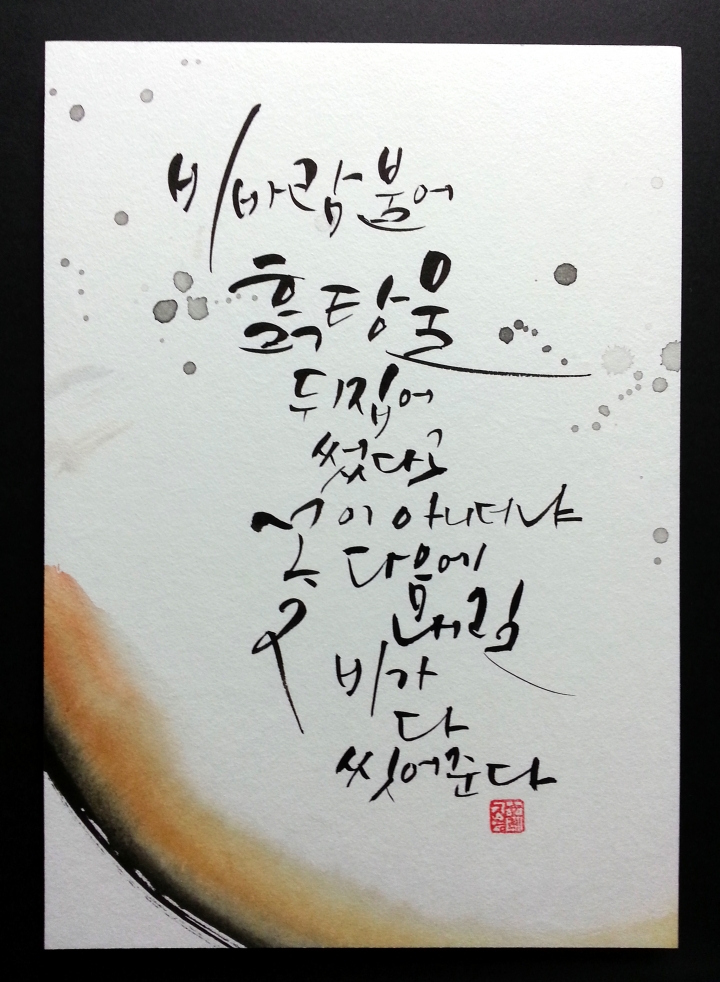 비바람불어
흙탕물
뒤집어
썼다고
꽃이 아니더냐
다음에
내릴
비가
다
씻어준다